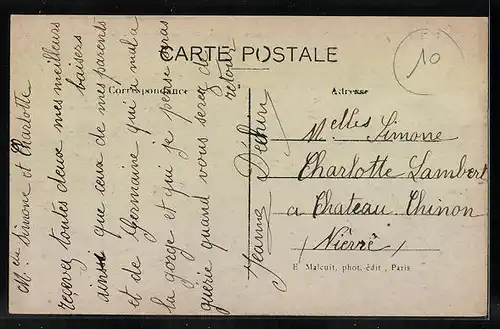 CARTE POSTALE
Correspondance
Adresse
10
Melles Simone
Charlotte Lambert
a Chateau Chinon
(Nièvre)
E. Malcuit, phot. édit., Paris
Melles Simone et Charlotte
recevez toutes deux mes meilleurs
baisers
ainsi que ceux de mes parents
et de Germaine qui a mal a
la gorge et qui je pense sera
guerie quand vous serez de
retour
Jeanne